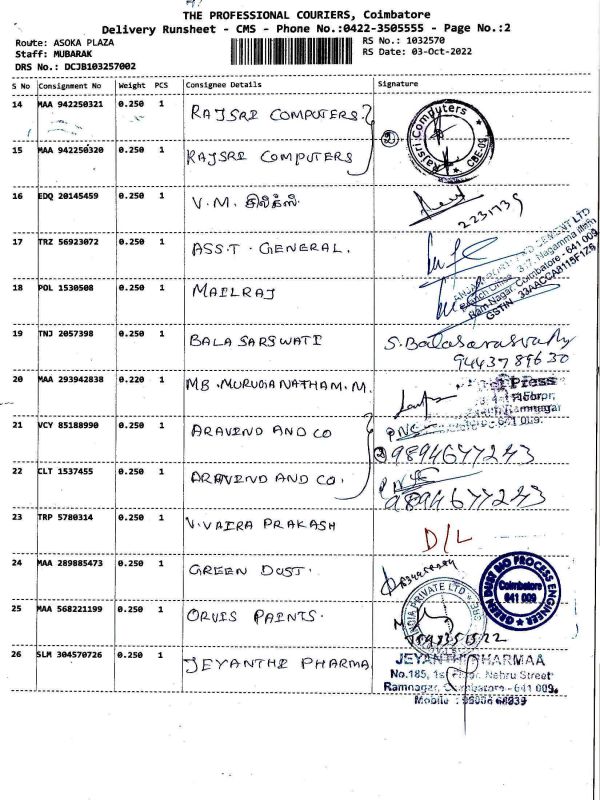 THE PROFESSIONAL COURIERS, Coimbatore
Delivery Runsheet - CMS - Phone No.:0422-3505555 - Page No.:2
Route: ASOKA PLAZA
RS No.: 1032570
Staff: MUBARAK
RS Date: 03-Oct-2022
DRS No.: DCJB103257002
S No Consignment No Weight PCS Consignee Details Signature
14 MAA 942250321 0.250 1 RAJSRI COMPUTERS.
Rajsri Computers CBE-09
2
15 MAA 942250320 0.250 1 RAJSRI COMPUTERS
16 EDQ 20145459 0.250 1 V.M.
2231739
17 TRZ 56923072 0.250 1 ASST. GENERAL.
Ram Nagar, Coimbatore - 641 009
18 POL 1530508 0.250 1 MAILRAJ
19 TNJ 2057398 0.250 1 BALA SARSWATI S. Balasaraswathy
9443789630
20 MAA 293942838 0.220 1 MB. MURUGANATHAM.M.
Press
Ramnagar
21 VCY 85188990 0.250 1 ARAVIND AND CO
2 9894677243
22 CLT 1537455 0.250 1 ARAVIND AND CO.
9894677243
23 TRP 5780314 0.250 1 V.VAIRA PRAKASH D/L
24 MAA 289885473 0.250 1 GREEN DUST.
GREEN DUST BIO PROCESS ENGINEER
Coimbatore
641 009
25 MAA 568221199 0.250 1 ORVIS PAINTS.
INDIA PRIVATE LTD
26 SLM 304570726 0.250 1 JEYANTHI PHARMA.
JEYANTHI PHARMAA
No.185, 1st Floor, Nehru Street
Ramnagar, Coimbatore - 641 009.
Mobile :